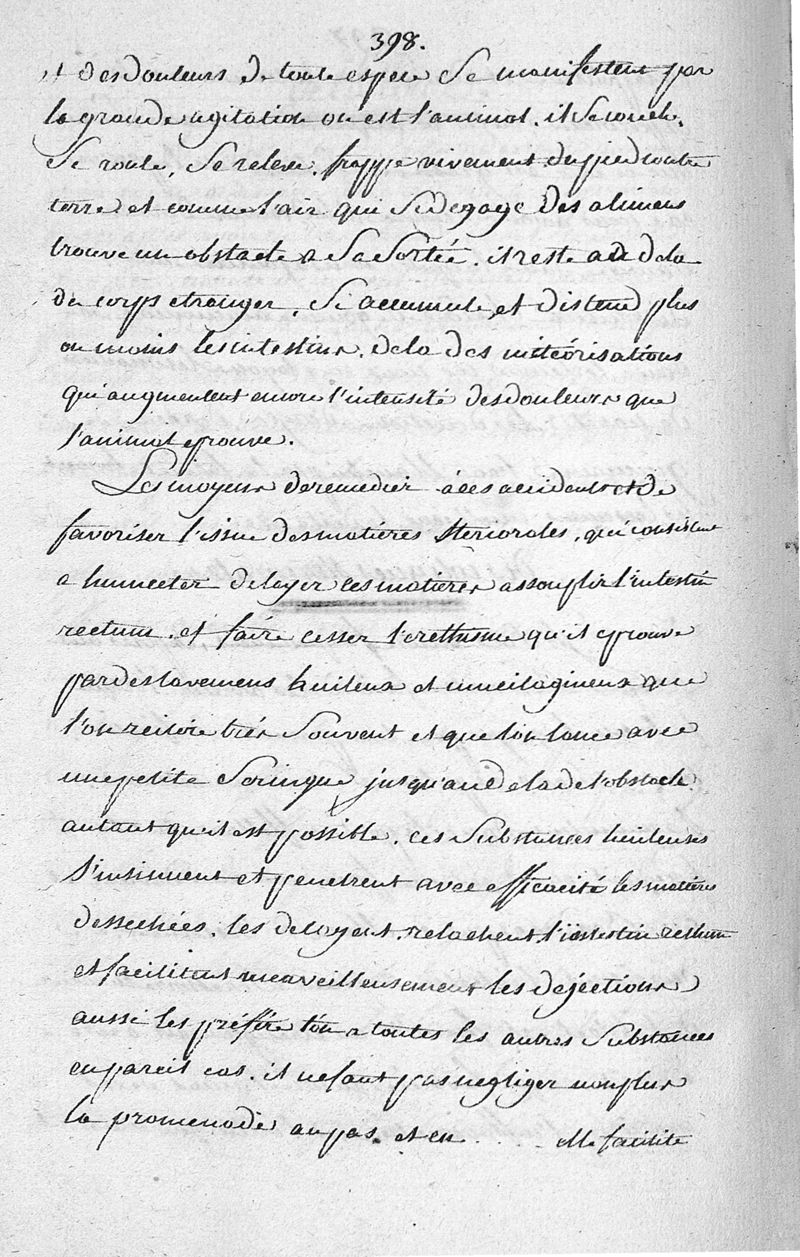 398.
et des douleurs de toute espece se manifestent par
la grande agitation ou est l'animal. il se couche,
se roule, se releve, frappe vivement du pied contre
terre. et comme l'air qui se degage des alimens
trouve un obstacle a sa sortée. il reste au dela
du corps etranger, si accumule et distend plus
ou moins les intestins, dela des météorisations
qui augmentent encore l'intensité des douleurs que
l'animal eprouve.
Les moyens de remedier à ces accidents et de
favoriser l'issue des matières stercorales, qui consistent
a humecter delayer ces matières assouplir l'intestin
rectum. et faire cesser l'erethisme qu'il eprouve
par des lavemens huileux et mucilagineux que
l'on reitère très souvent et que l'on lance avec
une petite seringue jusqu'au dela de l'obstacle
autant qu'il est possible. ces substances huileuses
s'insinuent et penetrent avec efficacité les matières
dessechées. les delayent, relachent l'intestin rectum
et facilitent merveilleusement les dejections
aussi les préfère l'on a toutes les autres substances
en pareil cas. il ne faut pas negliger non plus
la promenade au pas. et en .... elle facilite